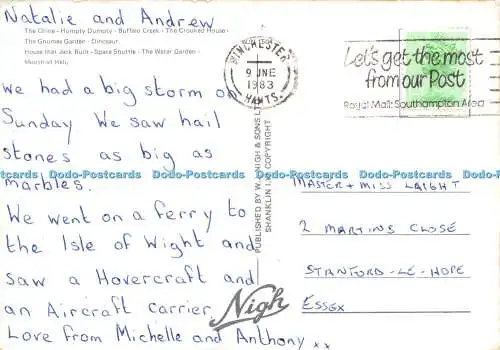 Natalie and Andrew
The Chine - Humpty Dumpty - Buffalo Creek - The Crooked House -
The Gnomes Garden - Dinosaur.
House that Jack Built - Space Shuttle - The Water Garden -
we had a big storm on
Sunday We saw hail
stones as big as
marbles.
We went on a ferry to
the Isle of Wight and
saw a Hovercraft and
an Aircraft carrier.
Love from Michelle and Anthony xx
WINCHESTER
9 JNE
1983
HANTS.
Let's get the most
from our Post
Royal Mail: Southampton Area
PUBLISHED BY W. J. NIGH & SONS LTD
SHANKLIN I.W. COPYRIGHT
Nigh
MASTER + MISS LAIGHT
2 MARTINS CLOSE
STANFORD-LE-HOPE
ESSEX
Dodo-Postcards Dodo-Postcards Dodo-Postcards Dodo-Postcards